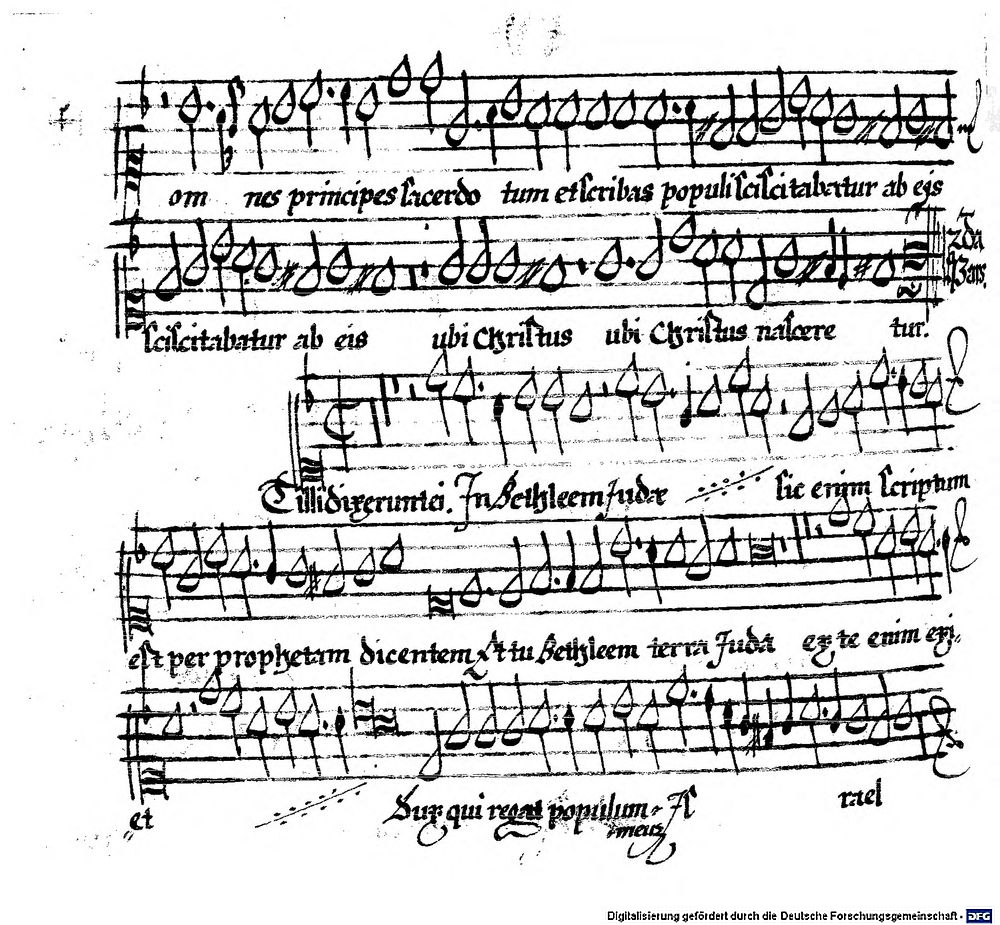 om nes principes sacerdo tum et scribas populi sciscitabatur ab eis
2da
sciscitabatur ab eis ubi Christus ubi Christus nascere tur.
At illi dixerunt ei. In Bethleem Judæ sic enim scriptum
est per prophetam dicentem Et tu Bethleem terra Juda ex te enim exi-
et Dux qui regat populum meum Is rael
Digitalisierung gefördert durch die Deutsche Forschungsgemeinschaft - DFG